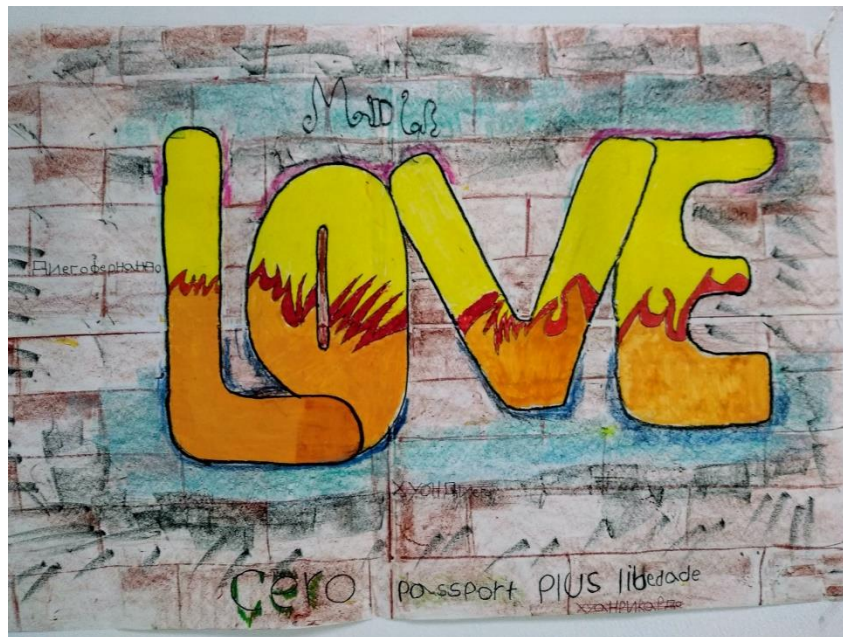 LOVE
Диегофернандо
Çero passport PlUS libedade
хуанрикардо